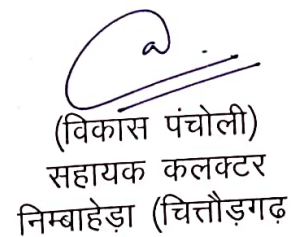 (विकास पंचोली)
सहायक कलक्टर
निम्बाहेड़ा (चित्तौड़गढ़